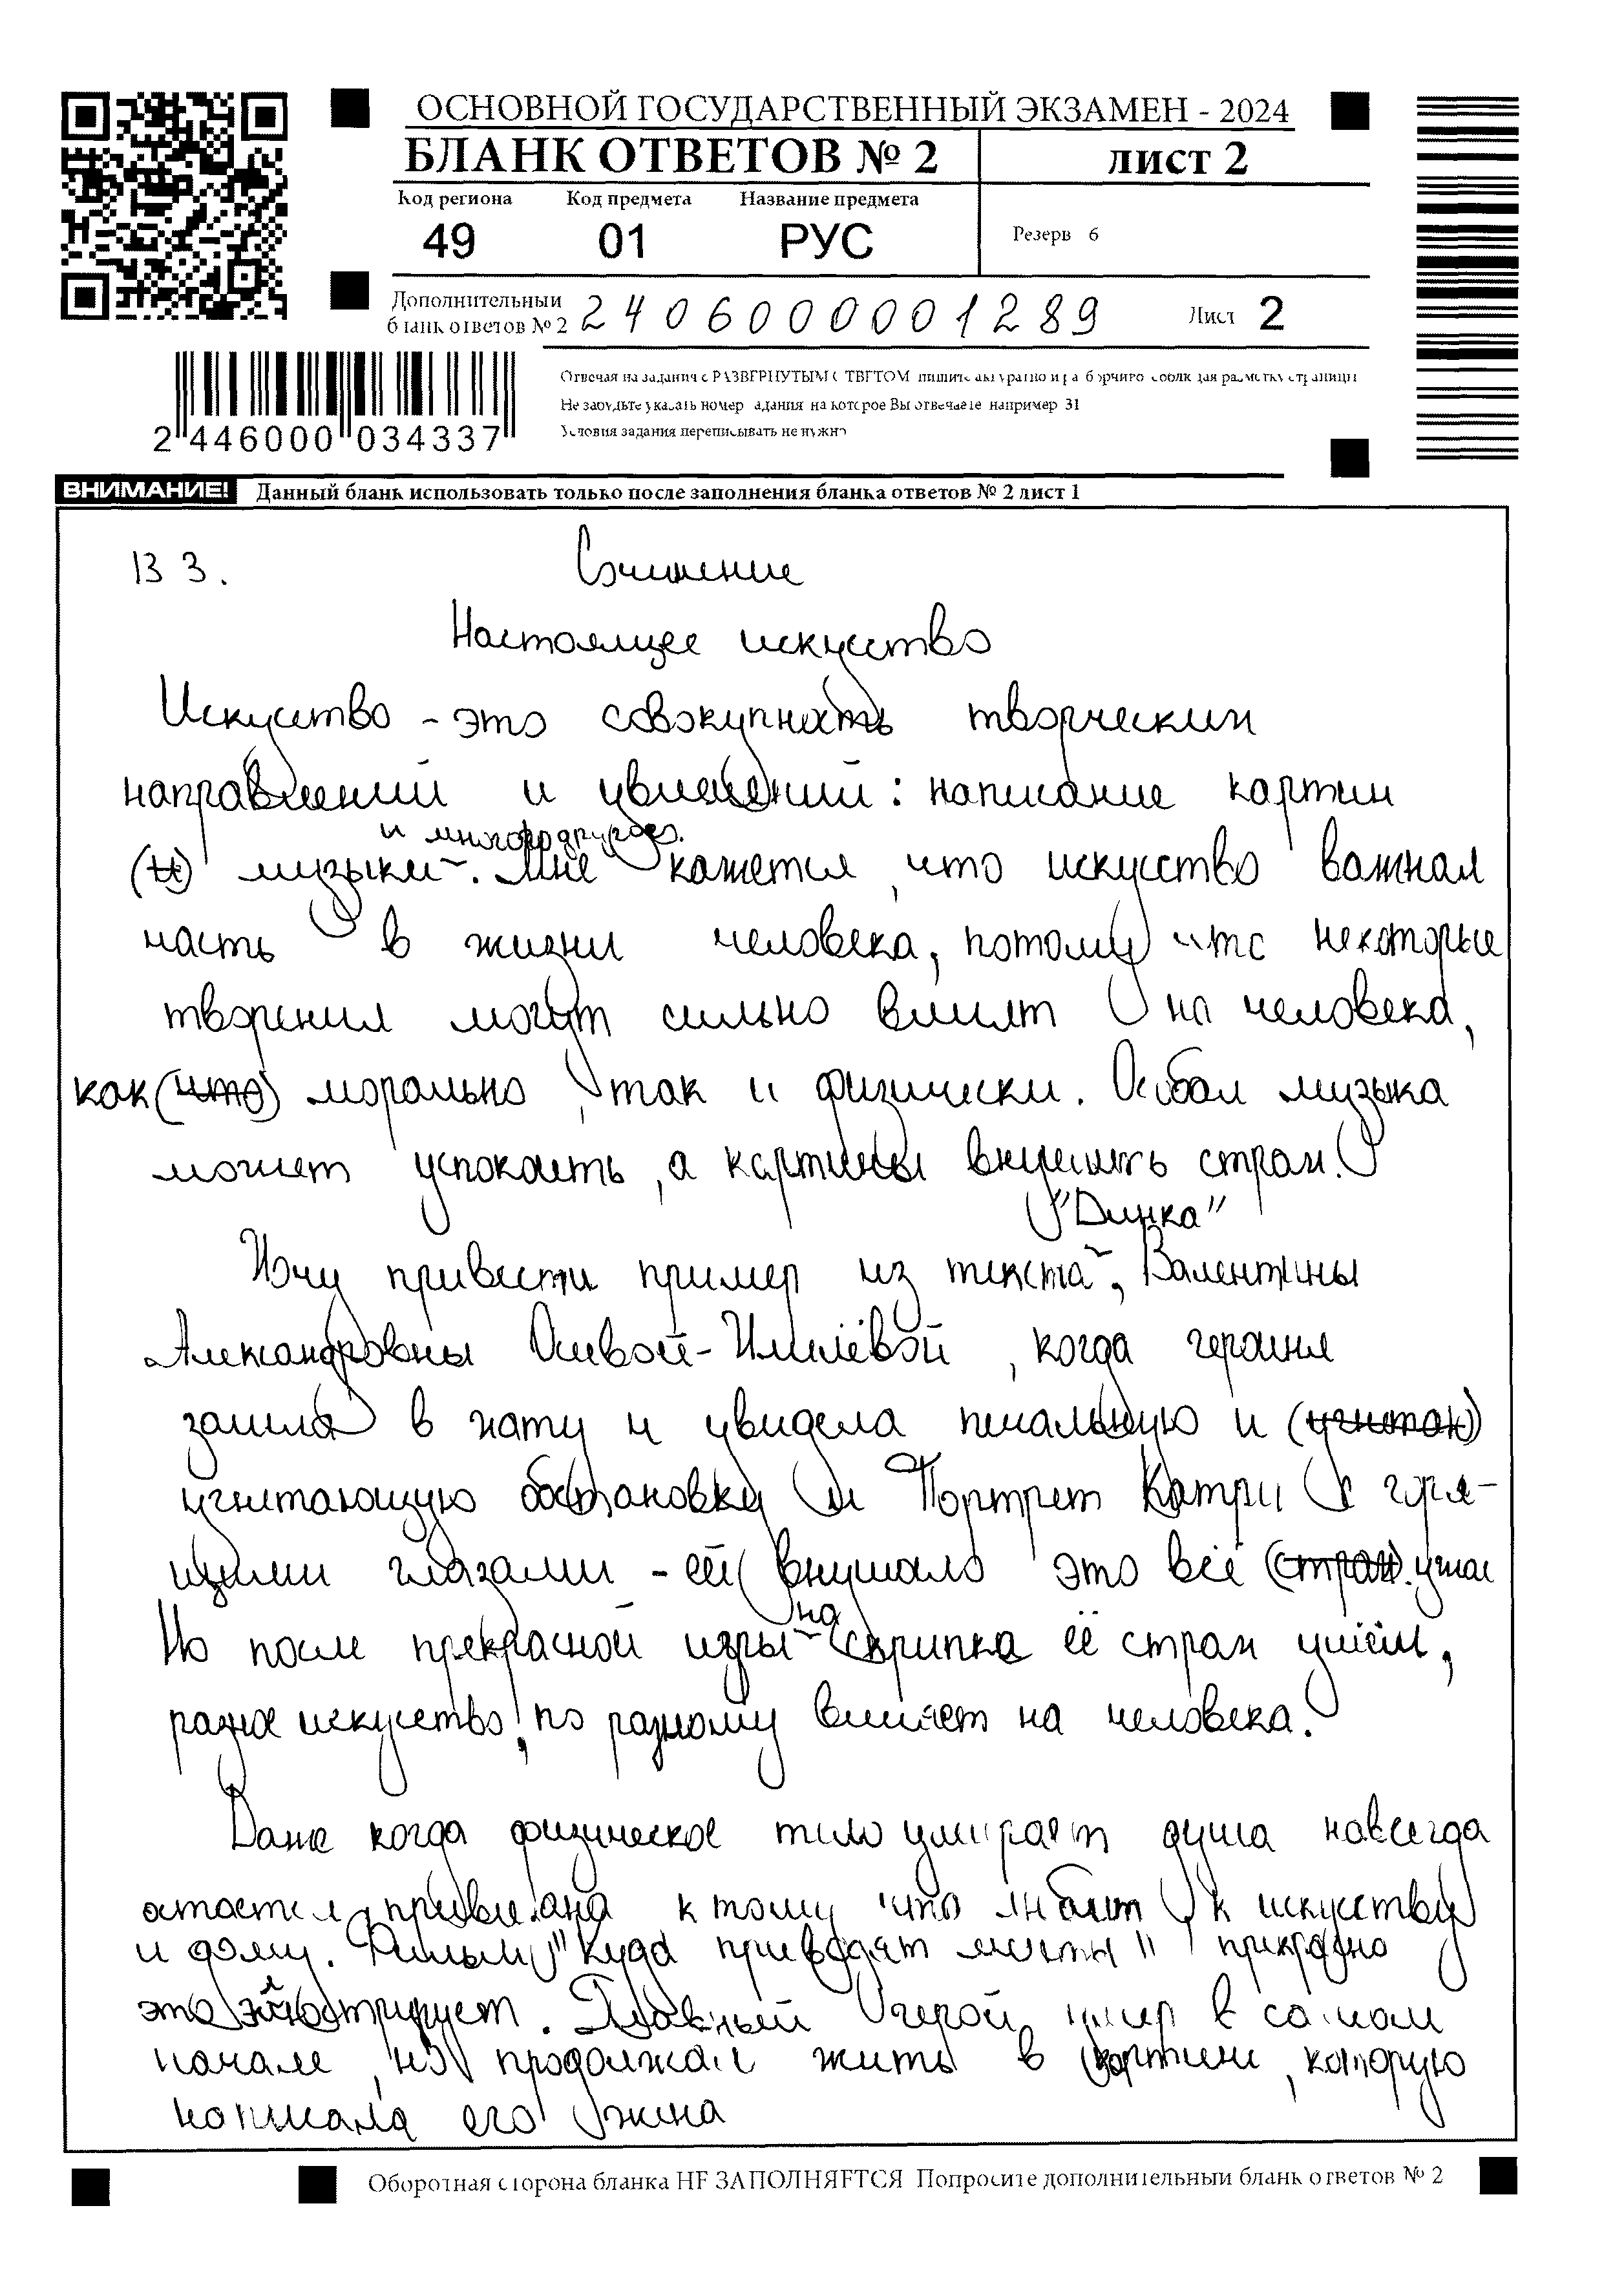 ОСНОВНОЙ ГОСУДАРСТВЕННЫЙ ЭКЗАМЕН - 2024
БЛАНК ОТВЕТОВ № 2 лист 2
Код региона Код предмета Название предмета
49 01 РУС
Резерв 6
Дополнительный
бланк ответов № 2 2406000001289 Лист 2
Отвечая на задания с РАЗВЕРНУТЫМ ОТВЕТОМ пишите аккуратно и разборчиво соблюдая разметку страницы
Не забудьте указать номер задания на которое Вы отвечаете например 31
Условия задания переписывать не нужно
2 446000 034337
ВНИМАНИЕ! Данный бланк использовать только после заполнения бланка ответов № 2 лист 1
13 3. Сочинение
Настоящее искусство
Искуство - это совокупность творческих
направлений и увлечений: написание картин
и многое другое.
(и) музыки. Мне кажется, что искусство важная
часть в жизни человека, потому что некоторые
творения могут сильно влият на человека,
как (что) морально, так и физически. Особая музыка
может успокоить, а картины внушить страх.
"Динка"
Хочу привести пример из текста, Валентины
Александровны Осеевой-Хмелёвой, когда героиня
зашла в хату и увидела печальную и (угнетаю)
угнетающую обстановку и Портрет Катри с горя-
щими глазами - ей внушало это всё (страх). ужас
на
Но после прекрасной игры скрипка её страх ушёл,
разное искусство, по разному влияет на человека.
Даже когда физическое тело умирает душа навсегда
остается привязана к тому что любит к искусству
и дому. Фильм "Куда приводят мечты" прикрасно
это иллюстрирует. Главный герой умер в самом
начале, но продолжал жить в картине, которую
написала его жена
Оборотная сторона бланка НЕ ЗАПОЛНЯЕТСЯ Попросите дополнительный бланк ответов № 2